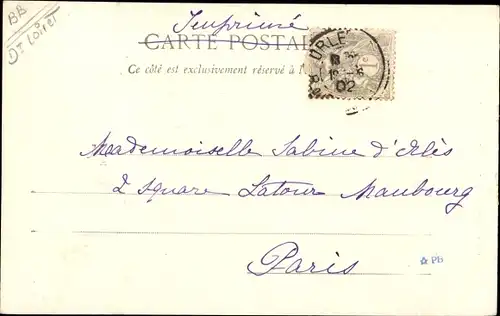 BB
Dt Loiret
Imprimé
CARTE POSTAL
Ce côté est exclusivement réservé à l'
ORLE
02
Mademoiselle Sabine d'Orlès
2 square Latour Maubourg
Paris
☆ PB